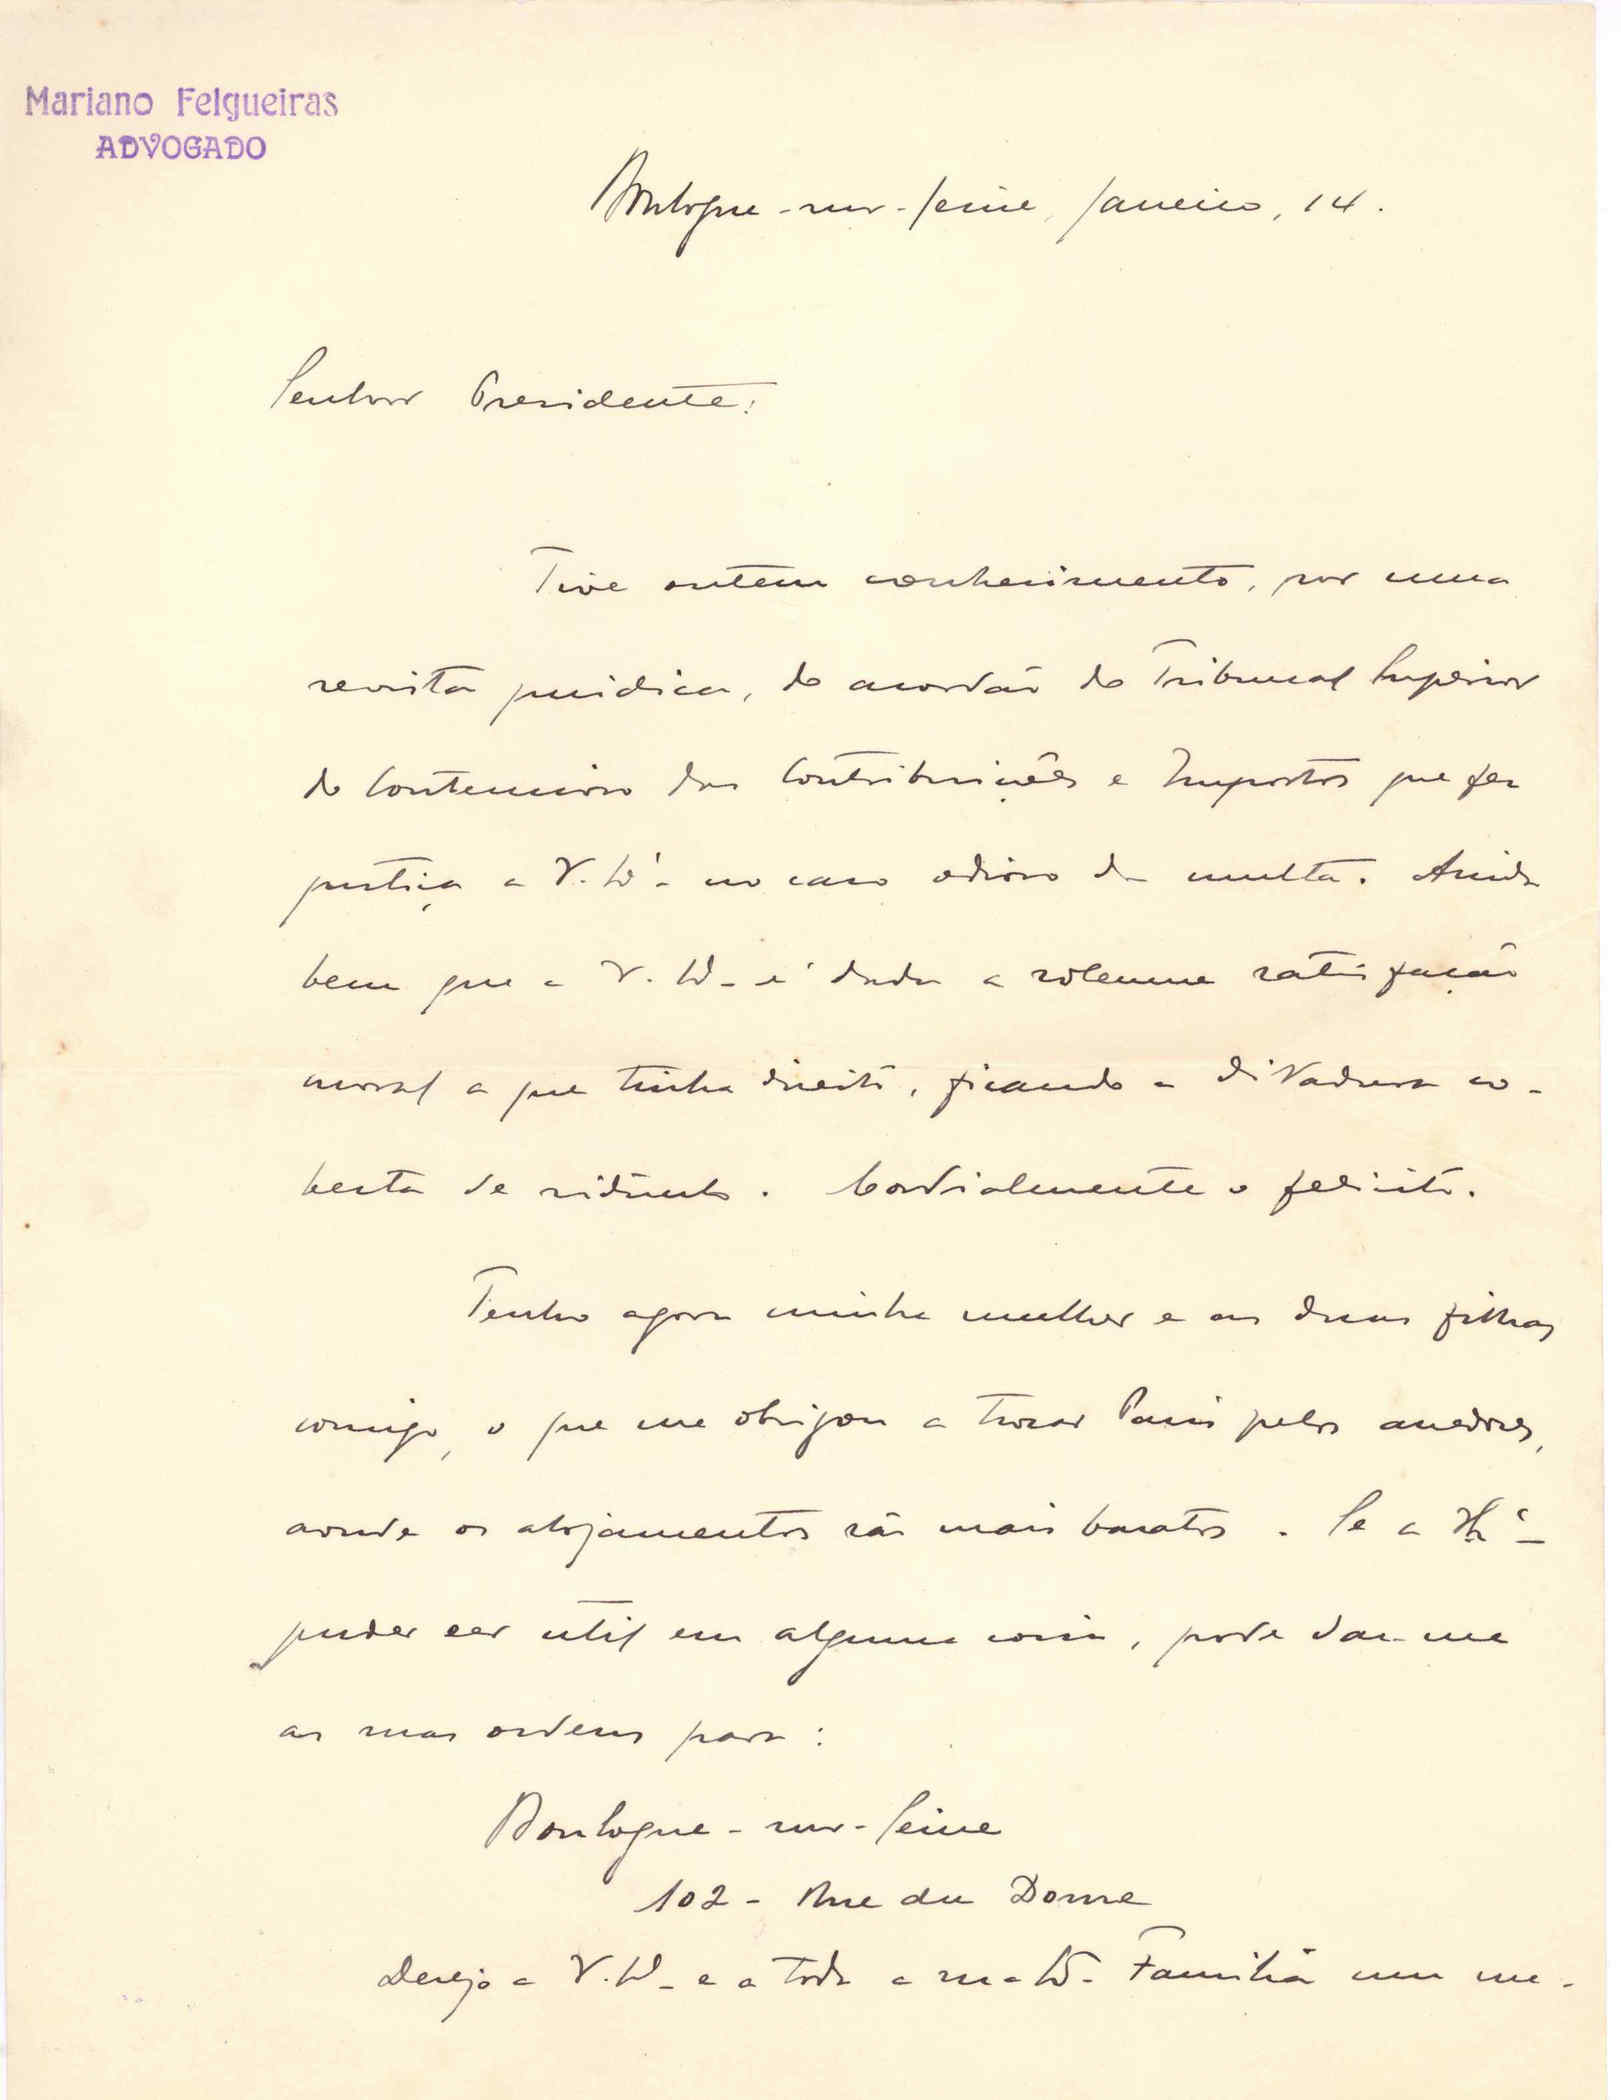 Mariano Felgueiras
ADVOGADO
Boulogne-sur-Seine, Janeiro, 14.
Senhor Presidente:
Tive ontem conhecimento, por uma
revista juridica, do acordão do Tribunal Superior
do Contencioso das Contribuições e Impostos que fez
justiça a V. no caso odioso da multa. Ainda
bem que a V. é dada a solemne satisfação
moral a que tinha direito, ficando a Ditadura co-
berta de ridiculo. Cordialmente o felicito.
Tenho agora minha mulher e as duas filhas
comigo, o que me obrigou a trocar Paris pelos arredores,
aonde os alojamentos são mais baratos. Se a
puder ser util em alguma coisa, pode dar-me
as suas ordens para:
Boulogne-sur-Seine
102 - Rue du Dome
Desejo a V. e a toda a sua Familia um me-